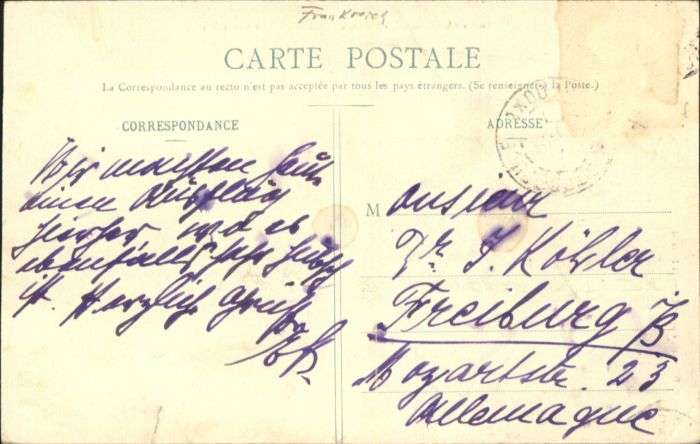 Frankreich
CARTE POSTALE
La Correspondance au recto n'est pas acceptée par tous les pays étrangers. (Se renseigner à la Poste.)
CORRESPONDANCE
ADRESSE
Wir machten heute
einen Ausflug
hierher wo es
ebenfalls sehr hübsch
ist. Herzliche Grüße
Monsieur
Dr. J. Köhler
Freiburg i/B
Mozartstr. 23
Allemagne